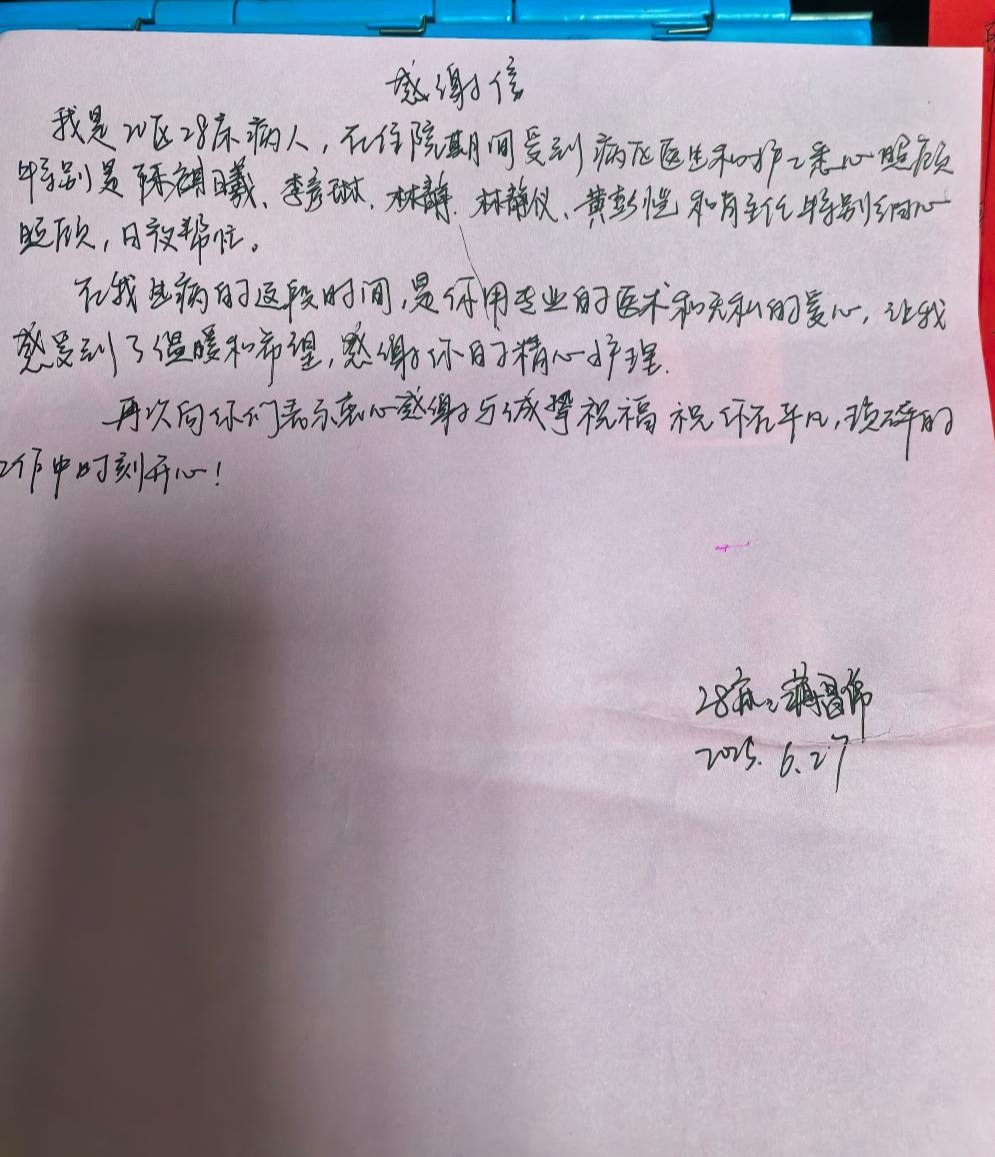 感谢信
我是20区28床病人,在住院期间受到病区医生和护工悉心照顾
特别是陈祺曦、李彦琳、林静、林静仪、黄彭恺和肖主任特别细心
照顾,日夜帮忙。
在我生病的这段时间,是你用专业的医术和无私的爱心,让我
感受到了温暖和希望,感谢你的精心护理.
再次向你们表示衷心感谢与诚挚祝福 祝你在平凡,琐碎的
工作中时刻开心!
28床:
2025.6.27